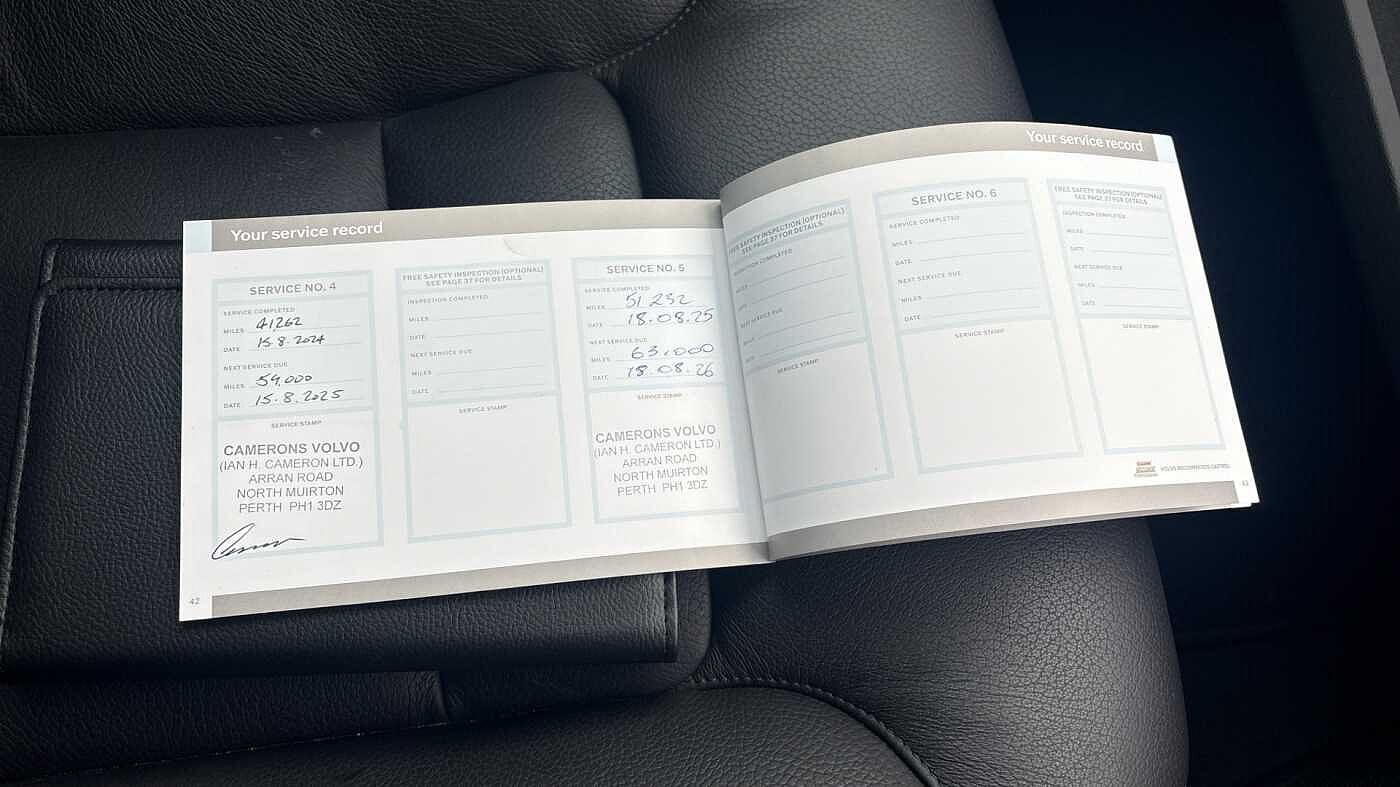 Your service record
SERVICE NO. 4
SERVICE COMPLETED
MILES 41,262
DATE 15.8.2024
NEXT SERVICE DUE
MILES 54,000
DATE 15.8.2025
SERVICE STAMP
CAMERONS VOLVO
(IAN H. CAMERON LTD.)
ARRAN ROAD
NORTH MUIRTON
PERTH PH1 3DZ
42
FREE SAFETY INSPECTION (OPTIONAL)
SEE PAGE 37 FOR DETAILS
INSPECTION COMPLETED
MILES
DATE
NEXT SERVICE DUE
MILES
DATE
SERVICE STAMP
SERVICE NO. 5
SERVICE COMPLETED
MILES 51,232
DATE 18.08.25
NEXT SERVICE DUE
MILES 63,000
DATE 18.08.26
SERVICE STAMP
CAMERONS VOLVO
(IAN H. CAMERON LTD.)
ARRAN ROAD
NORTH MUIRTON
PERTH PH1 3DZ
Your service record
FREE SAFETY INSPECTION (OPTIONAL)
SEE PAGE 37 FOR DETAILS
INSPECTION COMPLETED
MILES
DATE
NEXT SERVICE DUE
MILES
DATE
SERVICE STAMP
SERVICE NO. 6
SERVICE COMPLETED
MILES
DATE
NEXT SERVICE DUE
MILES
DATE
SERVICE STAMP
FREE SAFETY INSPECTION (OPTIONAL)
SEE PAGE 37 FOR DETAILS
INSPECTION COMPLETED
MILES
DATE
NEXT SERVICE DUE
MILES
DATE
SERVICE STAMP
VOLVO RECOMMENDS CASTROL
43